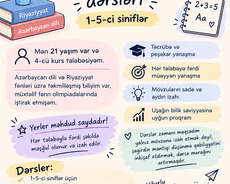 Riyaziyyat
Azərbaycan dili
dərsləri
1-5-ci siniflər
2+3=5
Aa
Mən 21 yaşım var və
4-cü kurs tələbəsiyəm.
Azərbaycan dili və Riyaziyyat
fənləri üzrə təkmilləşmiş biliyim var,
müxtəlif fənn olimpiadalarında
iştirak etmişəm.
Təcrübə və
peşəkar yanaşma
Hər tələbəyə fərdi
müəyyən yanaşma
Mövzuların sadə və
aydın izahı
Uşağın bilik səviyyəsinə
uyğun proqram
Yerlər məhdud saydadır!
Hər tələbəylə fərdi şəkildə
məşğul olunur və izah edilir.
Dərslər zamanı məqsədim
yalnız mövzunu izah etmək deyil,
şagirdin məntiqi düşünmə qabiliyyətini
inkişaf etdirmək, dərsə marağını
artırmaqdır.
Dərslər:
1-5-ci siniflər üçün